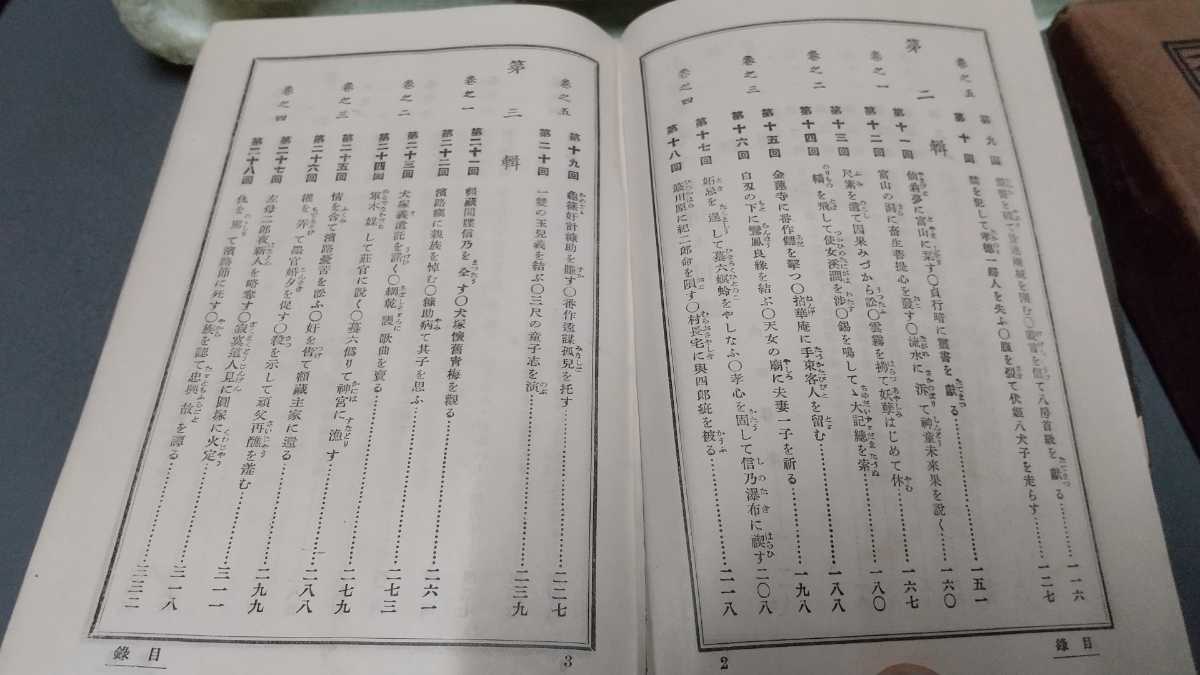 卷之五
第九回 て八房首級を獻る 一一六
第十回 禁を犯して 婦人を失ふ〇腹を裂て伏姬八犬子を走らす 一二七
第二輯
卷之一
第十一回 仙翁夢に富山に栞す〇貞行暗に靈書を獻る 一五一
第十二回 富山の洞に畜生菩提心を發す〇流水に泝て神童未來果を說く 一六〇
第十三回 尺素を遺て因果みづから訟〇雲霧を拂て妖孽はじめて休 一六七
卷之二
第十四回 轎を飛して使女溪澗を涉〇錫を鳴してヽ大記總を索 一八〇
第十五回 金蓮寺に番作讐を擊つ〇拈華庵に手束客人を留む 一八八
卷之三
第十六回 白刃の下に鸞鳳良緣を結ぶ〇天女の廟に夫妻一子を祈る 一九八
第十七回 妬忌を逞して蟇六螟蛉をやしなふ〇孝心を固して信乃瀑布に禊す 二〇八
卷之四
第十八回 簸川原に紀二郎命を隕す〇村長宅に與四郎疵を被る 二一八
目錄
2
卷之五
第十九回 龜篠奸計糠助を賺す〇番作遠謀孤兒を托す 二二七
第二十回 一雙の玉兒義を結ぶ〇三尺の童子志を演 二三九
第三輯
卷之一
第二十一回 額藏間諜信乃を全す〇犬塚懷舊靑梅を觀る
第二十二回 濱路竊に親族を悼む〇糠助病て其子を思ふ 二六一
卷之二
第二十三回 犬塚義遺託を諾く〇網乾謾歌曲を賣る 二七三
第二十四回 軍木媒して莊官に說く〇蟇六僞りて神宮に漁す 二七九
卷之三
第二十五回 情を含て濱路憂苦を訟ふ〇奸を告て額藏主家に還る 二八八
第二十六回 權を弄て墨官婚夕を促す〇殺を示して頑父再醮を羞む 二九九
卷之四
第二十七回 左母二郎夜新人を略奪す〇寂寞道人見に圓塚に火定 三一一
第二十八回 仇を罵て濱路節に死す〇族を認て忠與故を譚る 三一八
三三二
目錄
3